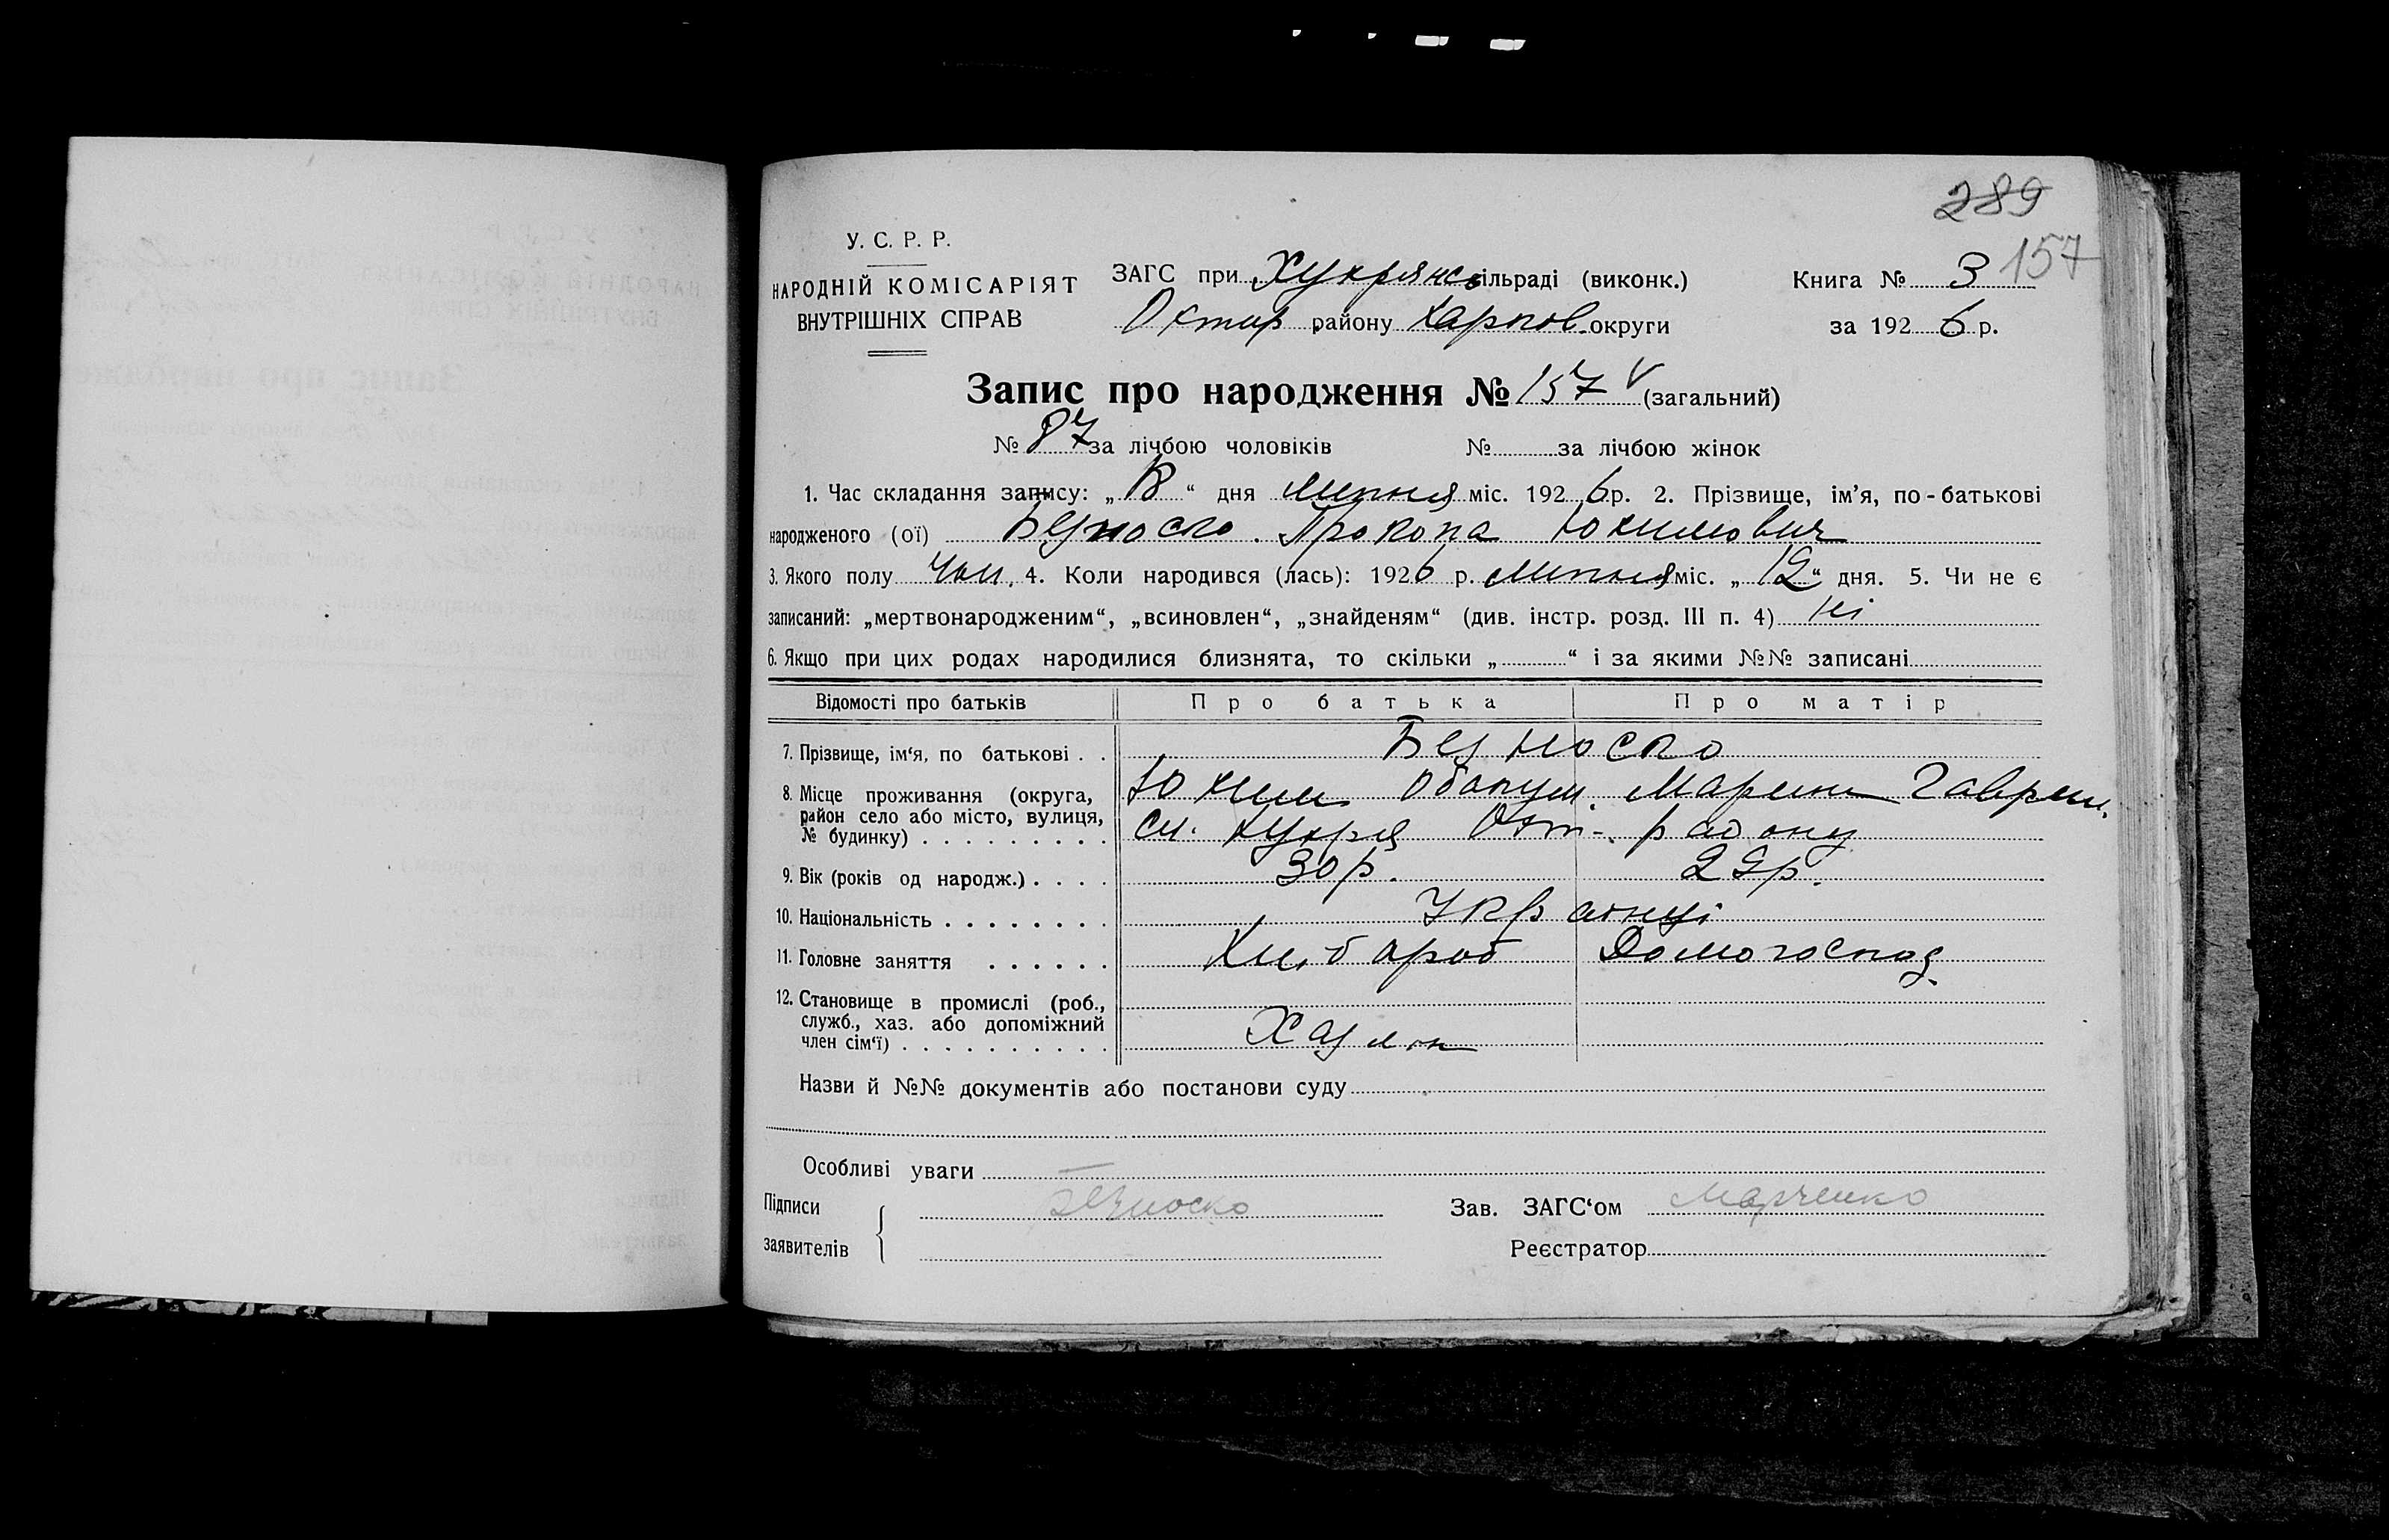 289
157
У. С. Р. Р.
НАРОДНІЙ КОМІСАРІЯТ
ВНУТРІШНІХ СПРАВ
ЗАГС при Хухрянсь сільраді (виконк.)
Охтир району Харков. округи
Книга № 3
за 1926 р.
Запис про народження № 157 V (загальний)
№ 87 за лічбою чоловіків № за лічбою жінок
1. Час складання запису: „ “ дня липня міс. 1926 р. 2. Прізвище, ім’я, по-батькові
народженого (ої) Безноско. Прокопа Юхимович
3. Якого полу Чол. 4. Коли народився (лась): 1926 р. липня міс. „12“ дня. 5. Чи не є
записаний: „мертвонародженим“, „всиновлен“, „знайденям“ (див. інстр. розд. III п. 4) ні
6. Якщо при цих родах народилися близнята, то скільки „ “ і за якими №№ записані
Відомості про батьків Про батька Про матір
7. Прізвище, ім‘я, по батькові . . Безноско
Юхим . Марина Гаврил.
8. Місце проживання (округа, район село або місто, вулиця, № будинку) . . . . . . . . . сл. Хухря Охт- району
9. Вік (років од народж.) . . . . 30 р. 29 р.
10. Національність . . . . . . . . Українці
11. Головне заняття . . . . . . Хлібороб Домогоспод.
12. Становище в промислі (роб.,
служб., хаз. або допоміжний
член сім‘ї) . . . . . . . . . . Хазяїн
Назви й №№ документів або постанови суду
Особливі уваги
Підписи
заявителів
Безноско
Зав. ЗАГС‘ом Марченко
Реєстратор